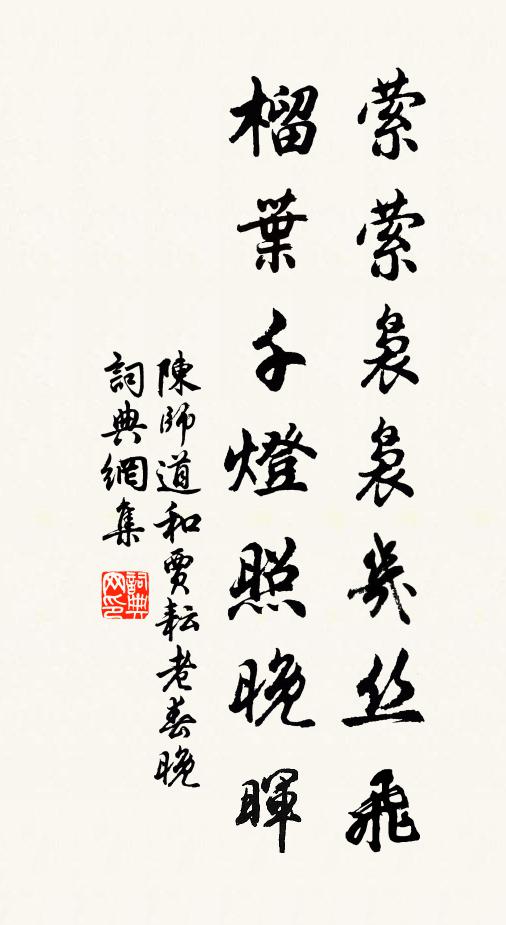 萦萦裊裊幾丝飛
榴葉千燈照晚暉
陳師道和賈耘老春晚
詞典網集
詞典网印